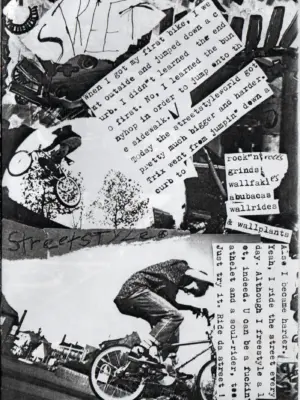 STREET
when I got my first bike, we
at outside and jumped down a c
urb. I didn't learned the end
o first. No, I learned the bun
nyhop in order to jump onto th
e sidewalk.
Today the streetstyleworld got
pretty much bigger and harder.
Trix went from jumpin' down a
curb to
rook'n'
grinds
wallfakies
abubacas
wallrides
& wallplants
Streetstyle
Also I became harder.
Yeah, I ride the street every
day. Although I freestyle a l
ot, indeed. U can be a fuckin
athelet and a soul-rider, too
Just try it. Ride da street !